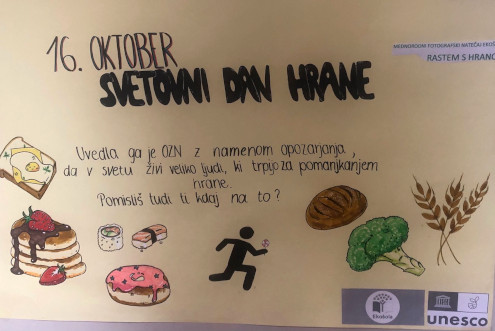 16. OKTOBER
SVETOVNI DAN HRANE
MEDNARODNI FOTOGRAFSKI NATEČAJ
RASTEM S HRANO
Uvedla ga je OZN z namenom opozarjanja,
da v svetu živi veliko ljudi, ki trpijo za pomanjkanjem
hrane.
Pomisliš tudi ti kdaj na to?
Ekošola
unesco